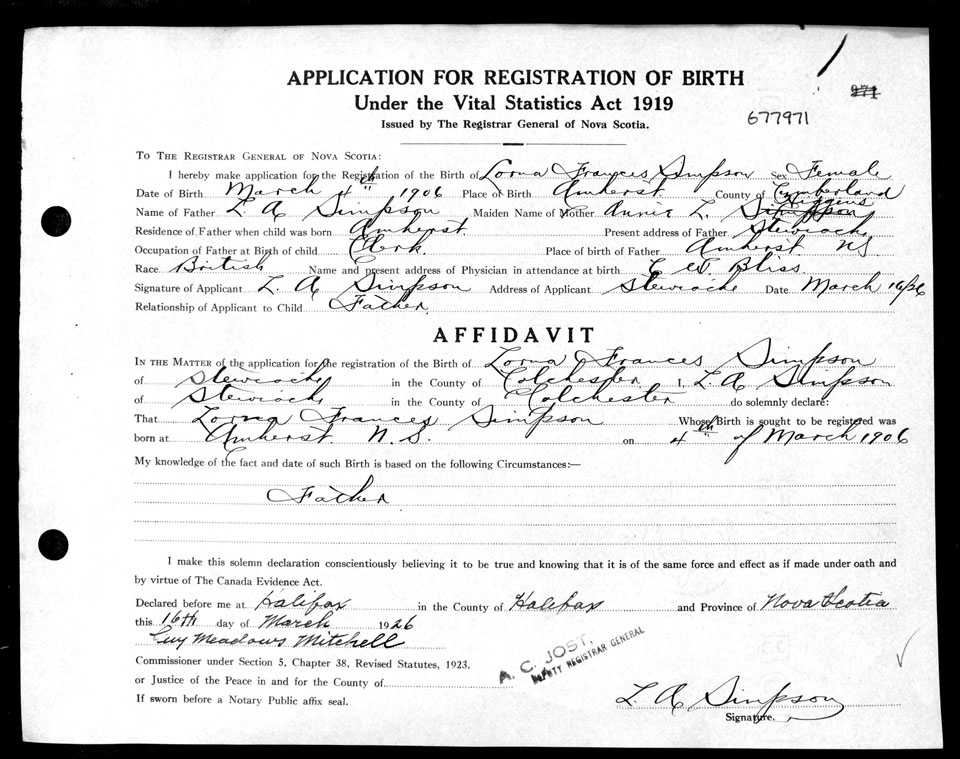 APPLICATION FOR REGISTRATION OF BIRTH
971
Under the Vital Statistics Act 1919
677971
Issued by The Registrar General of Nova Scotia.
TO THE REGISTRAR GENERAL OF NOVA SCOTIA:
I hereby make application for the Registration of the Birth of Lorna Frances Simpson Sex Female
Date of Birth March 4th 1906 Place of Birth Amherst County of Cumberland
Higgins
Name of Father L A Simpson Maiden Name of Mother Annie L. Simpson
Residence of Father when child was born Amherst. Present address of Father Stewiacke
Occupation of Father at Birth of child Clerk. Place of birth of Father Amherst NS
Race British Name and present address of Physician in attendance at birth C W. Bliss.
Signature of Applicant L. A Simpson Address of Applicant Stewiacke Date March 16/26
Relationship of Applicant to Child Father
AFFIDAVIT
IN THE MATTER of the application for the registration of the Birth of Lorna Frances Simpson
of Stewiacke in the County of Colchester I, L. A Simpson
of Stewiacke in the County of Colchester do solemnly declare:
That Lorna Frances Simpson Whose Birth is sought to be registered was
born at Amherst N. S. on 4th of March 1906
My knowledge of the fact and date of such Birth is based on the following Circumstances:—
Father
I make this solemn declaration conscientiously believing it to be true and knowing that it is of the same force and effect as if made under oath and
by virtue of The Canada Evidence Act.
Declared before me at Halifax in the County of Halifax and Province of Nova Scotia
this 16th day of March 1926
Guy Meadows Mitchell
Commissioner under Section 5, Chapter 38, Revised Statutes, 1923.
A. C. JOST,
DEPUTY REGISTRAR GENERAL
or Justice of the Peace in and for the County of
If sworn before a Notary Public affix seal.
L. A Simpson
Signature.